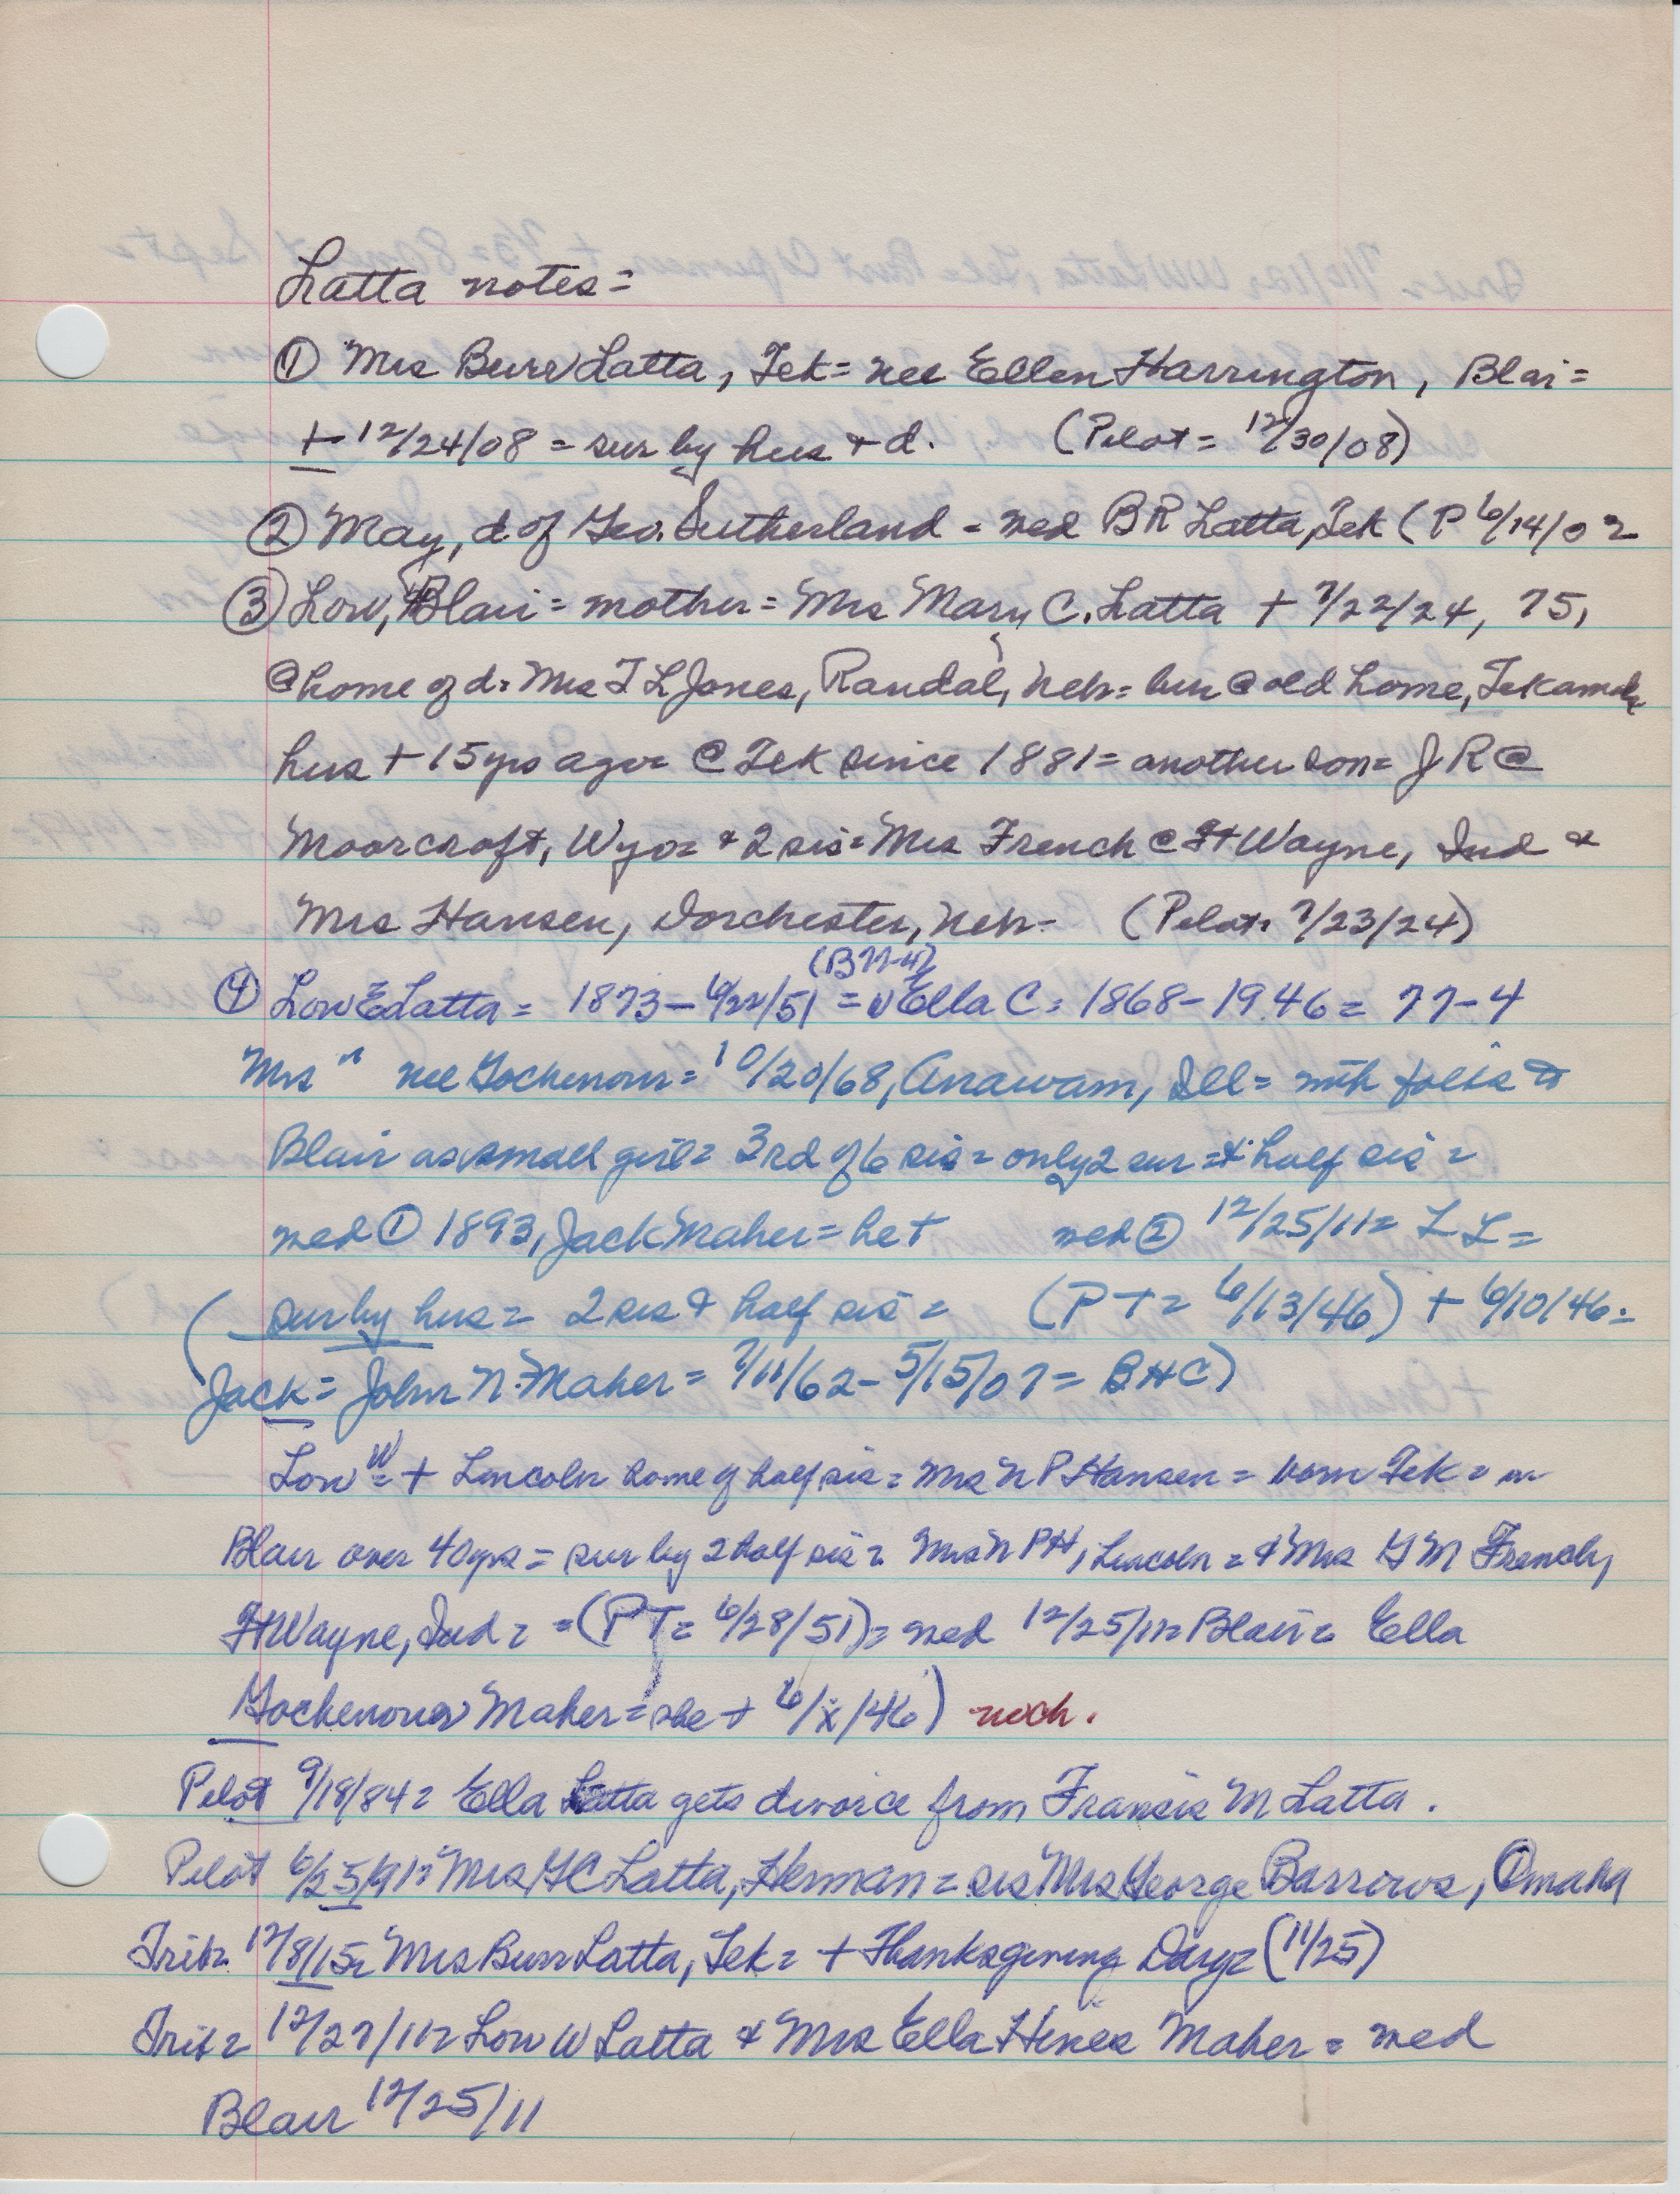 Latta notes=
① Mrs Burr Latta, Tek= nee Ellen Harrington, Blai=
+ 12/24/08 = sur by hus & d. (Pilot= 12/30/08)
② May, d of Geo. Sutherland - med BR Latta, Tek (P 6/14/02
③ Low, Blair= mother= Mrs Mary C. Latta + 7/22/24, 75,
@ home of d= Mrs T L Jones, Randal, Neb= bur @ old home, Tekamah
hus + 15 yrs ago= @ Tek since 1881= another son= J R @
Moorcroft, Wyo= & 2 sis= Mrs French @ Ft Wayne, Ind &
Mrs Hansen, Dorchester, Neb- (Pilot= 7/23/24)
(B 77-4)
④ Low E Latta= 1873- 6/22/51 = w Ella C= 1868-1946= 77-4
Mrs " nee Gochenour= 10/20/68, Anawam, Ill= with folks to
Blair as small girl= 3rd of 6 sis= only 2 sur = & half sis=
med ① 1893, Jack Maher= he + med ② 12/25/11= L L=
(sur by hus= 2 sis & half sis= (PT= 6/13/46) + 6/10/46=
Jack= John N. Maher= 7/11/62- 5/15/07= BHC)
Low W = + Lincoln home of half sis= Mrs N P Hansen= born Tek= in
Blair over 40 yrs= sur by 2 half sis= Mrs N P H, Lincoln= & Mrs G M French,
Ft Wayne, Ind= =(PT= 6/28/51)= med 12/25/11= Blair= Ella
Gochenour Maher= she + 6/x/46) noch.
Pilot 9/18/84= Ella Latta gets divorce from Francis M Latta.
Pilot 6/25/91= Mrs GC Latta, Herman= sis Mrs George Barrows, Omaha
Trib= 12/8/15= Mrs Burr Latta, Tek= + Thanksgiving Day= (11/25)
Trib= 12/27/11= Low W Latta & Mrs Ella Hines Maher= med
Blair 12/25/11